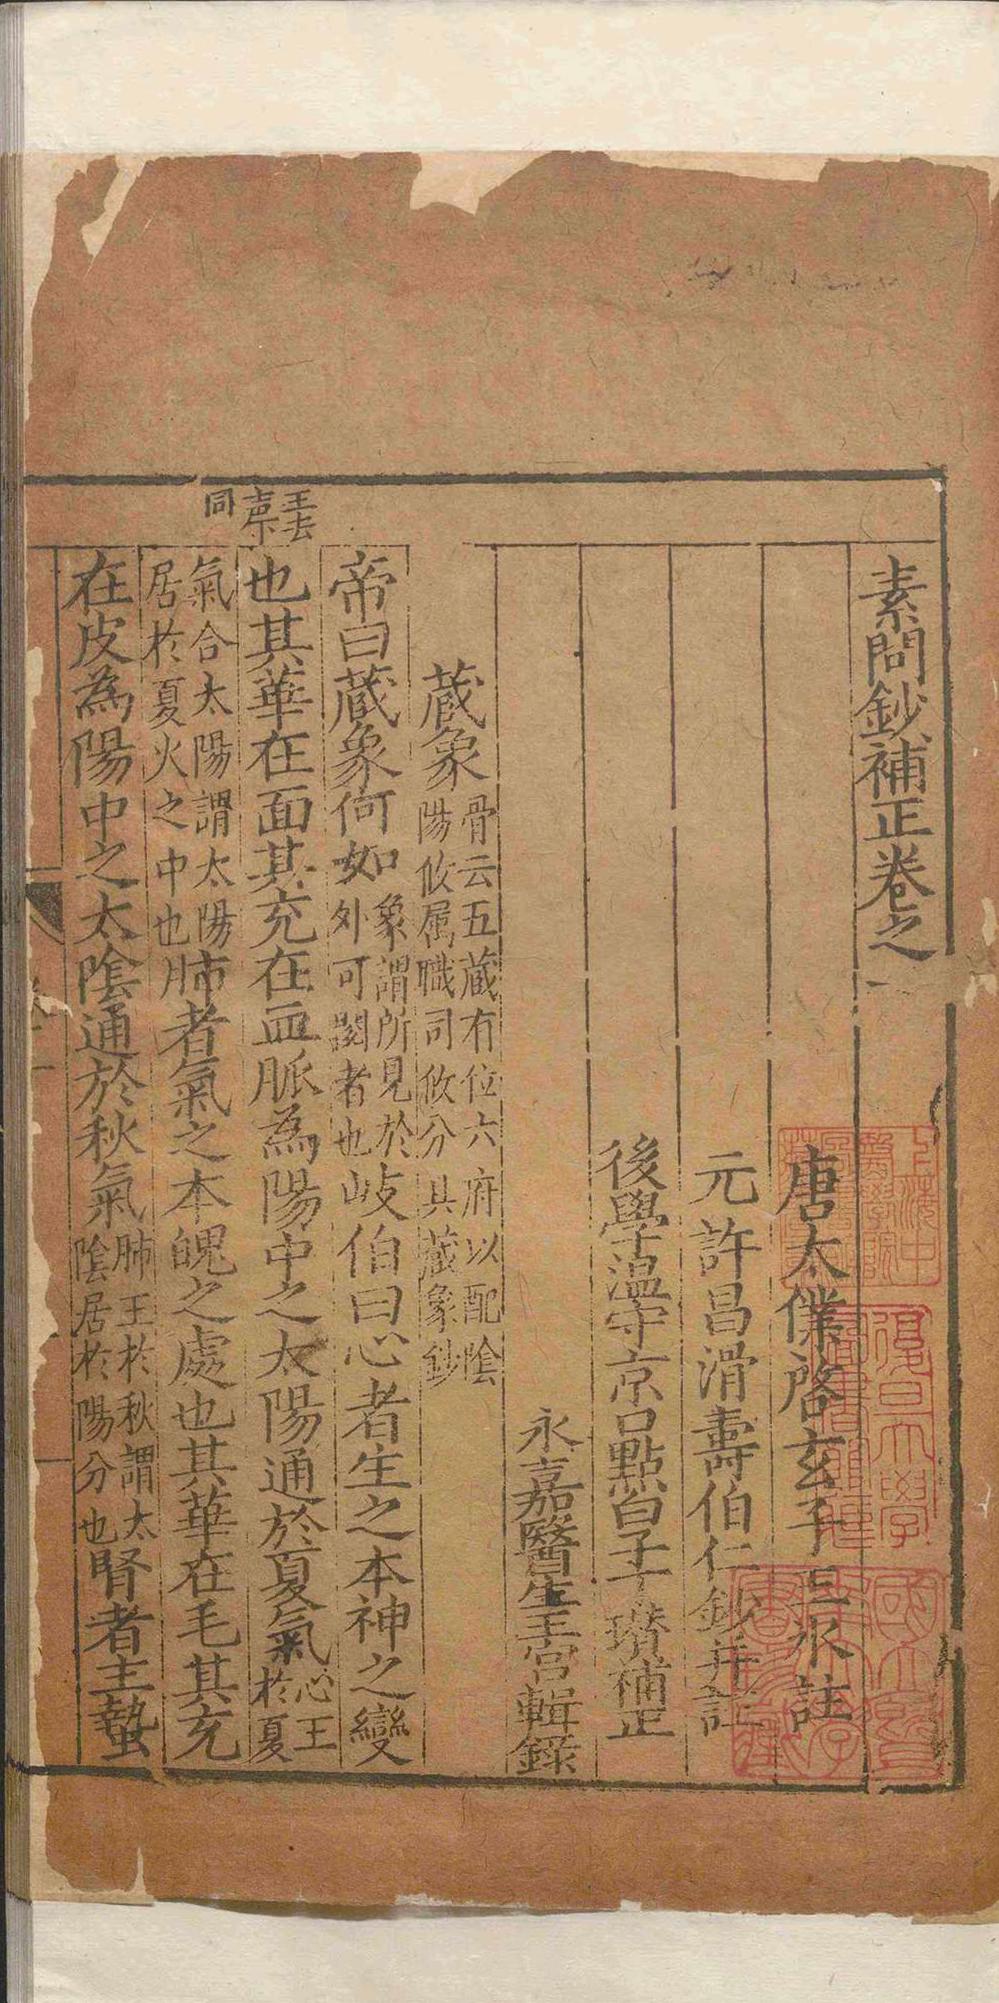 素問鈔補正卷之一
唐太僕啓玄子王冰註
元許昌滑壽伯仁鈔并註
後學溫守京口點白子 瓚補正
永嘉醫生王宮輯錄
藏象
骨云五蔵有位六府以配陰
陽攸属職司攸分具蔵象鈔
帝曰蔵象何如
象謂所見於
外可閱者也
岐伯曰心者生之本神之變
也其華在面其充在血脈為陽中之太陽通於夏氣
心王
於夏
氣合太陽謂太陽
居於夏火之中也
肺者氣之本魄之處也其華在毛其充
在皮為陽中之太陰通於秋氣
肺王於秋謂太
陰居於陽分也
腎者主蟄
同